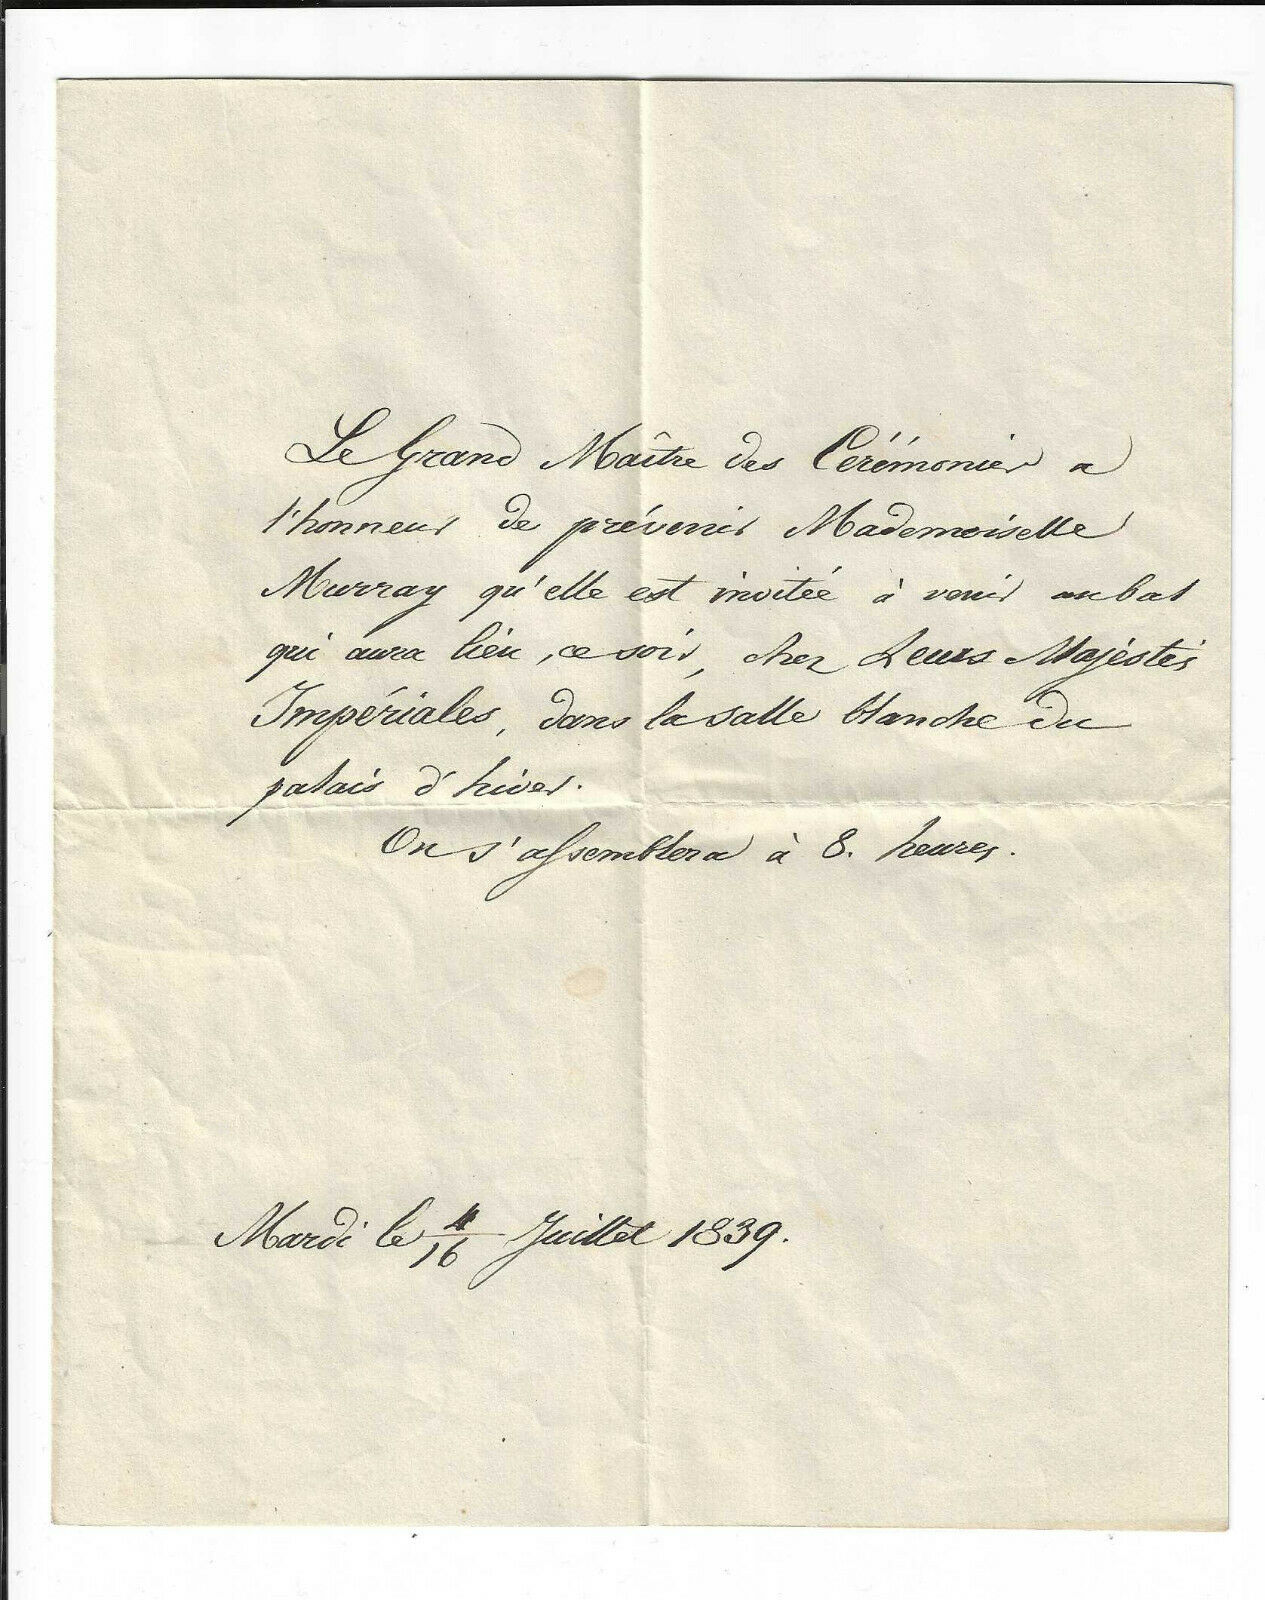 Le Grand Maître des Cérémonies a
l'honneur de prévenir Mademoiselle
Murray qu'elle est invitée à venir au bal
qui aura lieu, ce soir, chez Leurs Majéstés
Impériales, dans la salle blanche du
palais d'hiver.
On s'assemblera à 8. heures.
Mardi le 4/16 Juillet 1839.